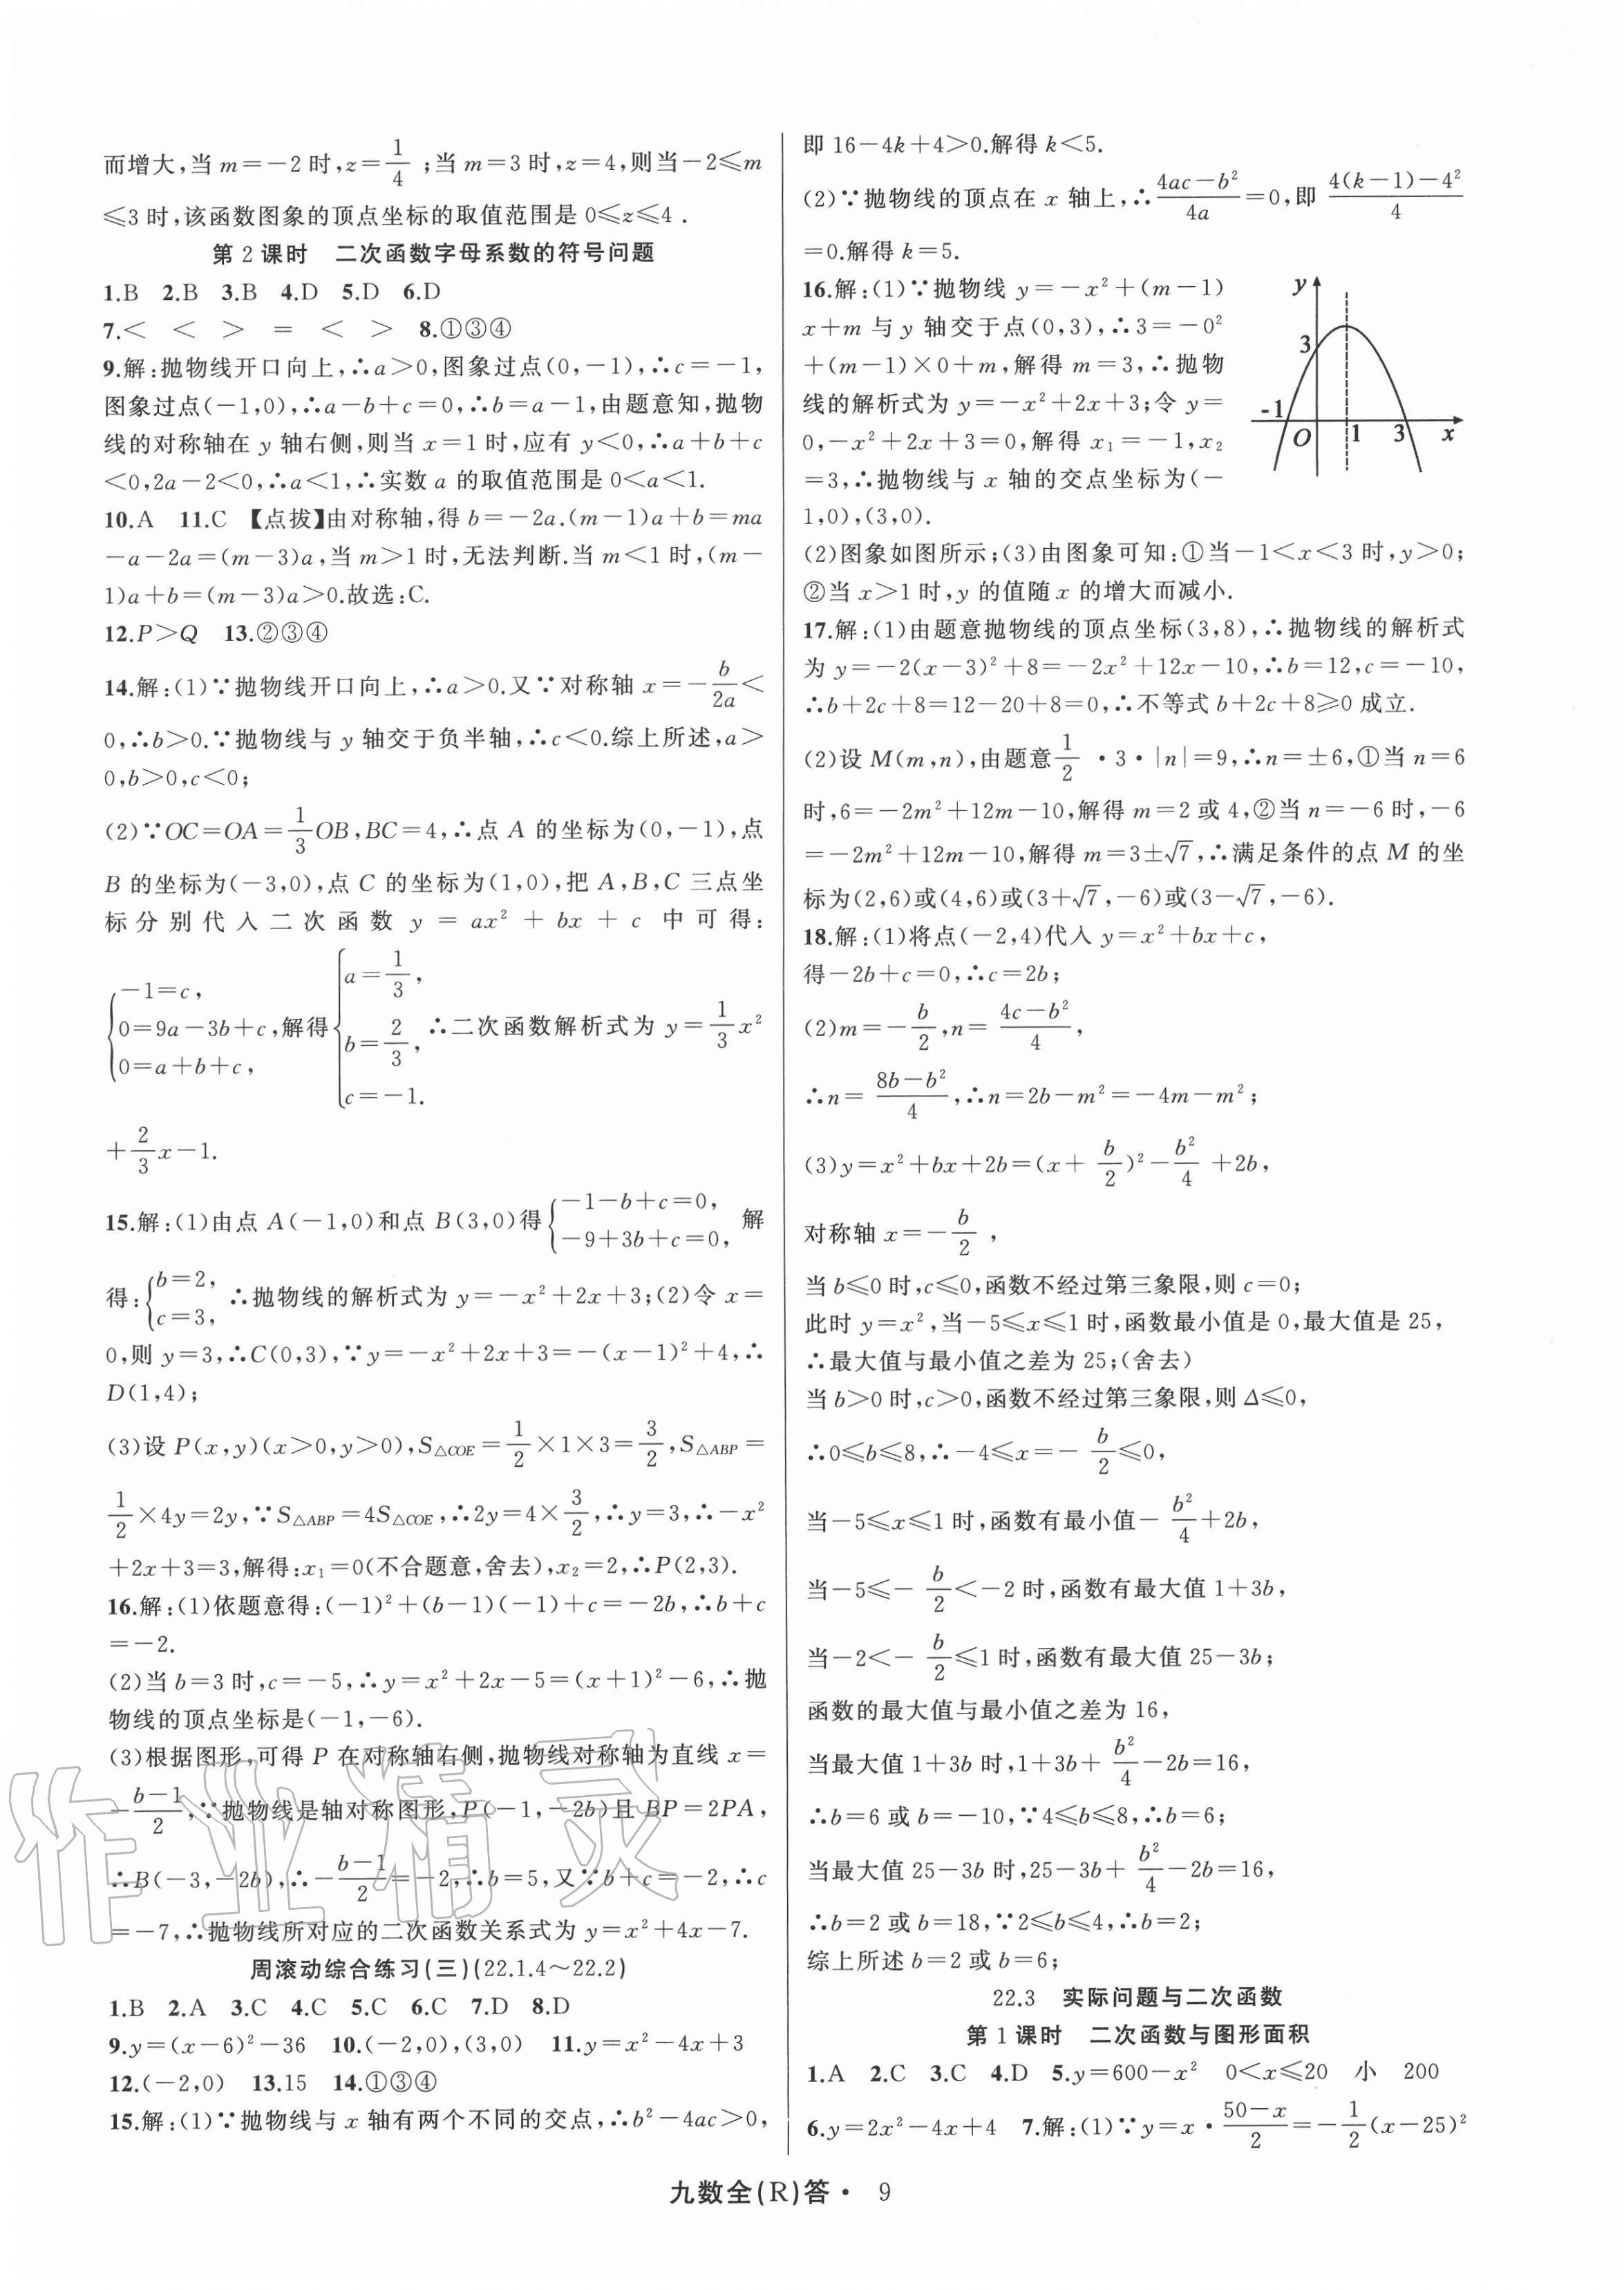 而增大,当 m=-2 时,z=1/4;当 m=3 时,z=4,则当-2≤m
≤3 时,该函数图象的顶点坐标的取值范围是 0≤z≤4 .
第 2 课时　二次函数字母系数的符号问题
1.B 2.B 3.B 4.D 5.D 6.D
7.< < > = < > 8.①③④
9.解:抛物线开口向上,∴a>0,图象过点(0,-1),∴c=-1,
图象过点(-1,0),∴a-b+c=0,∴b=a-1,由题意知,抛物
线的对称轴在 y 轴右侧,则当 x=1 时,应有 y<0,∴a+b+c
<0,2a-2<0,∴a<1,∴实数 a 的取值范围是 0<a<1.
10.A 11.C 【点拨】由对称轴,得 b=-2a.(m-1)a+b=ma
-a-2a=(m-3)a,当 m>1 时,无法判断.当 m<1 时,(m-
1)a+b=(m-3)a>0.故选:C.
12.P>Q 13.②③④
14.解:(1)∵抛物线开口向上,∴a>0.又∵对称轴 x=-b/2a<
0,∴b>0.∵抛物线与 y 轴交于负半轴,∴c<0.综上所述,a>
0,b>0,c<0;
(2)∵OC=OA=1/3OB,BC=4,∴点 A 的坐标为(0,-1),点
B 的坐标为(-3,0),点 C 的坐标为(1,0),把 A,B,C 三点坐
标分别代入二次函数 y = ax² + bx + c 中可得:
{-1=c, 0=9a-3b+c, 0=a+b+c, 解得{a=1/3, b=2/3, c=-1. ∴二次函数解析式为 y=1/3x²
+2/3x-1.
15.解:(1)由点 A(-1,0)和点 B(3,0)得{-1-b+c=0, -9+3b+c=0, 解
得:{b=2, c=3, ∴抛物线的解析式为 y=-x²+2x+3;(2)令 x=
0,则 y=3,∴C(0,3),∵y=-x²+2x+3=-(x-1)²+4,∴
D(1,4);
(3)设 P(x,y)(x>0,y>0),S△COE=1/2×1×3=3/2,S△ABP=
1/2×4y=2y,∵S△ABP=4S△COE,∴2y=4×3/2,∴y=3,∴-x²
+2x+3=3,解得:x₁=0(不合题意,舍去),x₂=2,∴P(2,3).
16.解:(1)依题意得:(-1)²+(b-1)(-1)+c=-2b,∴b+c
=-2.
(2)当 b=3 时,c=-5,∴y=x²+2x-5=(x+1)²-6,∴抛
物线的顶点坐标是(-1,-6).
(3)根据图形,可得 P 在对称轴右侧,抛物线对称轴为直线 x=
-(b-1)/2,∵抛物线是轴对称图形,P(-1,-2b)且 BP=2PA,
∴B(-3,-2b),∴-(b-1)/2=-2,∴b=5,又∵b+c=-2,∴c
=-7,∴抛物线所对应的二次函数关系式为 y=x²+4x-7.
周滚动综合练习(三)(22.1.4~22.2)
1.B 2.A 3.C 4.C 5.C 6.C 7.D 8.D
9.y=(x-6)²-36 10.(-2,0),(3,0) 11.y=x²-4x+3
12.(-2,0) 13.15 14.①③④
15.解:(1)∵抛物线与 x 轴有两个不同的交点,∴b²-4ac>0,
即 16-4k+4>0.解得 k<5.
(2)∵抛物线的顶点在 x 轴上,∴(4ac-b²)/4a=0,即 (4(k-1)-4²)/4
=0.解得 k=5.
16.解:(1)∵抛物线 y=-x²+(m-1)
x+m 与 y 轴交于点(0,3),∴3=-0²
+(m-1)×0+m,解得 m=3,∴抛物
线的解析式为 y=-x²+2x+3;令 y=
0,-x²+2x+3=0,解得 x₁=-1,x₂
=3,∴抛物线与 x 轴的交点坐标为(-
1,0),(3,0).
y
3
-1 O 1 3 x
(2)图象如图所示;(3)由图象可知:①当-1<x<3 时,y>0;
②当 x>1 时,y 的值随 x 的增大而减小.
17.解:(1)由题意抛物线的顶点坐标(3,8),∴抛物线的解析式
为 y=-2(x-3)²+8=-2x²+12x-10,∴b=12,c=-10,
∴b+2c+8=12-20+8=0,∴不等式 b+2c+8≥0 成立.
(2)设 M(m,n),由题意1/2·3·|n|=9,∴n=±6,①当 n=6
时,6=-2m²+12m-10,解得 m=2 或 4,②当 n=-6 时,-6
=-2m²+12m-10,解得 m=3±√7,∴满足条件的点 M 的坐
标为(2,6)或(4,6)或(3+√7,-6)或(3-√7,-6).
18.解:(1)将点(-2,4)代入 y=x²+bx+c,
得-2b+c=0,∴c=2b;
(2)m=-b/2,n=(4c-b²)/4,
∴n=(8b-b²)/4,∴n=2b-m²=-4m-m²;
(3)y=x²+bx+2b=(x+b/2)²-b²/4+2b,
对称轴 x=-b/2,
当 b≤0 时,c≤0,函数不经过第三象限,则 c=0;
此时 y=x²,当-5≤x≤1 时,函数最小值是 0,最大值是 25,
∴最大值与最小值之差为 25;(舍去)
当 b>0 时,c>0,函数不经过第三象限,则 Δ≤0,
∴0≤b≤8,∴-4≤x=-b/2≤0,
当-5≤x≤1 时,函数有最小值-b²/4+2b,
当-5≤-b/2<-2 时,函数有最大值 1+3b,
当-2<-b/2≤1 时,函数有最大值 25-3b;
函数的最大值与最小值之差为 16,
当最大值 1+3b 时,1+3b+b²/4-2b=16,
∴b=6 或 b=-10,∵4≤b≤8,∴b=6;
当最大值 25-3b 时,25-3b+b²/4-2b=16,
∴b=2 或 b=18,∵2≤b≤4,∴b=2;
综上所述 b=2 或 b=6;
22.3　实际问题与二次函数
第 1 课时　二次函数与图形面积
1.A 2.C 3.C 4.D 5.y=600-x² 0<x≤20 小 200
6.y=2x²-4x+4 7.解:(1)∵y=x·(50-x)/2=-1/2(x-25)²
九数全(R)答· 9
作业精灵